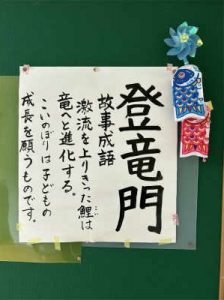 登竜門
故事成語
激流を上りきった鯉は
こい
竜へと進化する。
こいのぼりは子どもの
成長を願うものです。